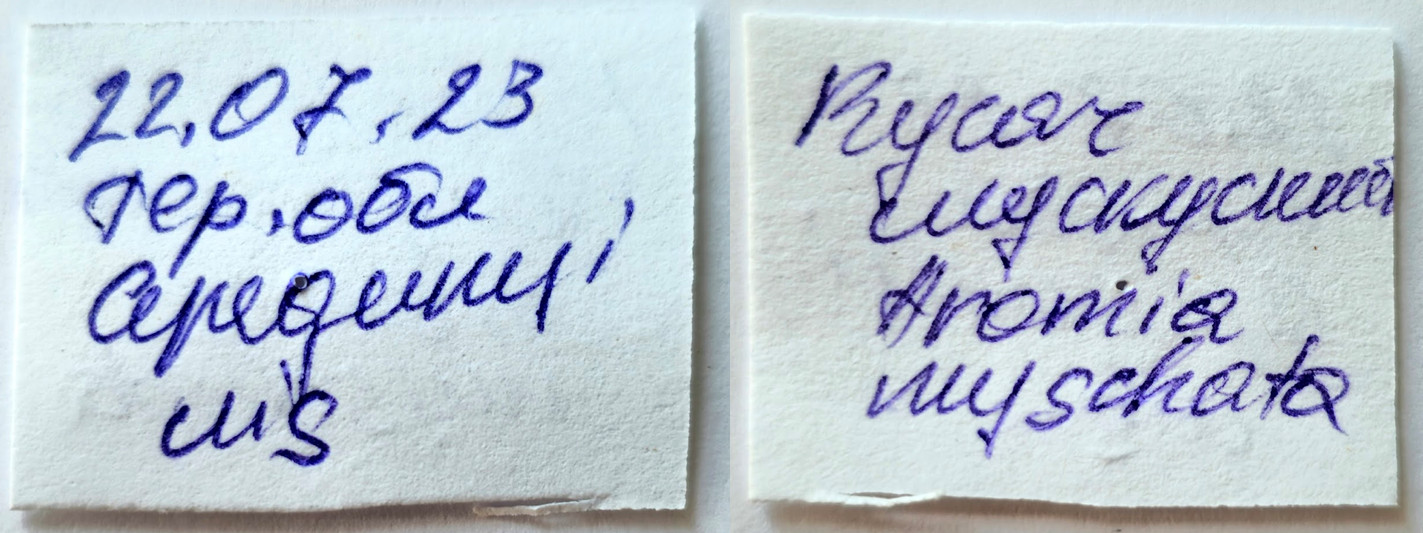 22.07.23
Тер.обл
Серединці
ms
Вусач
мускусний
Aromia
myschata